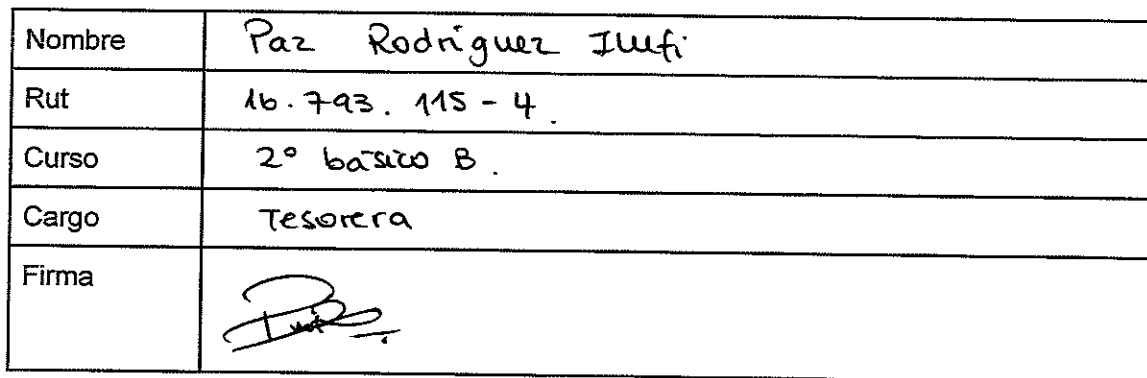 Nombre Paz Rodríguez Illufi
Rut 16.793.115-4.
Curso 2° básico B.
Cargo Tesorera
Firma